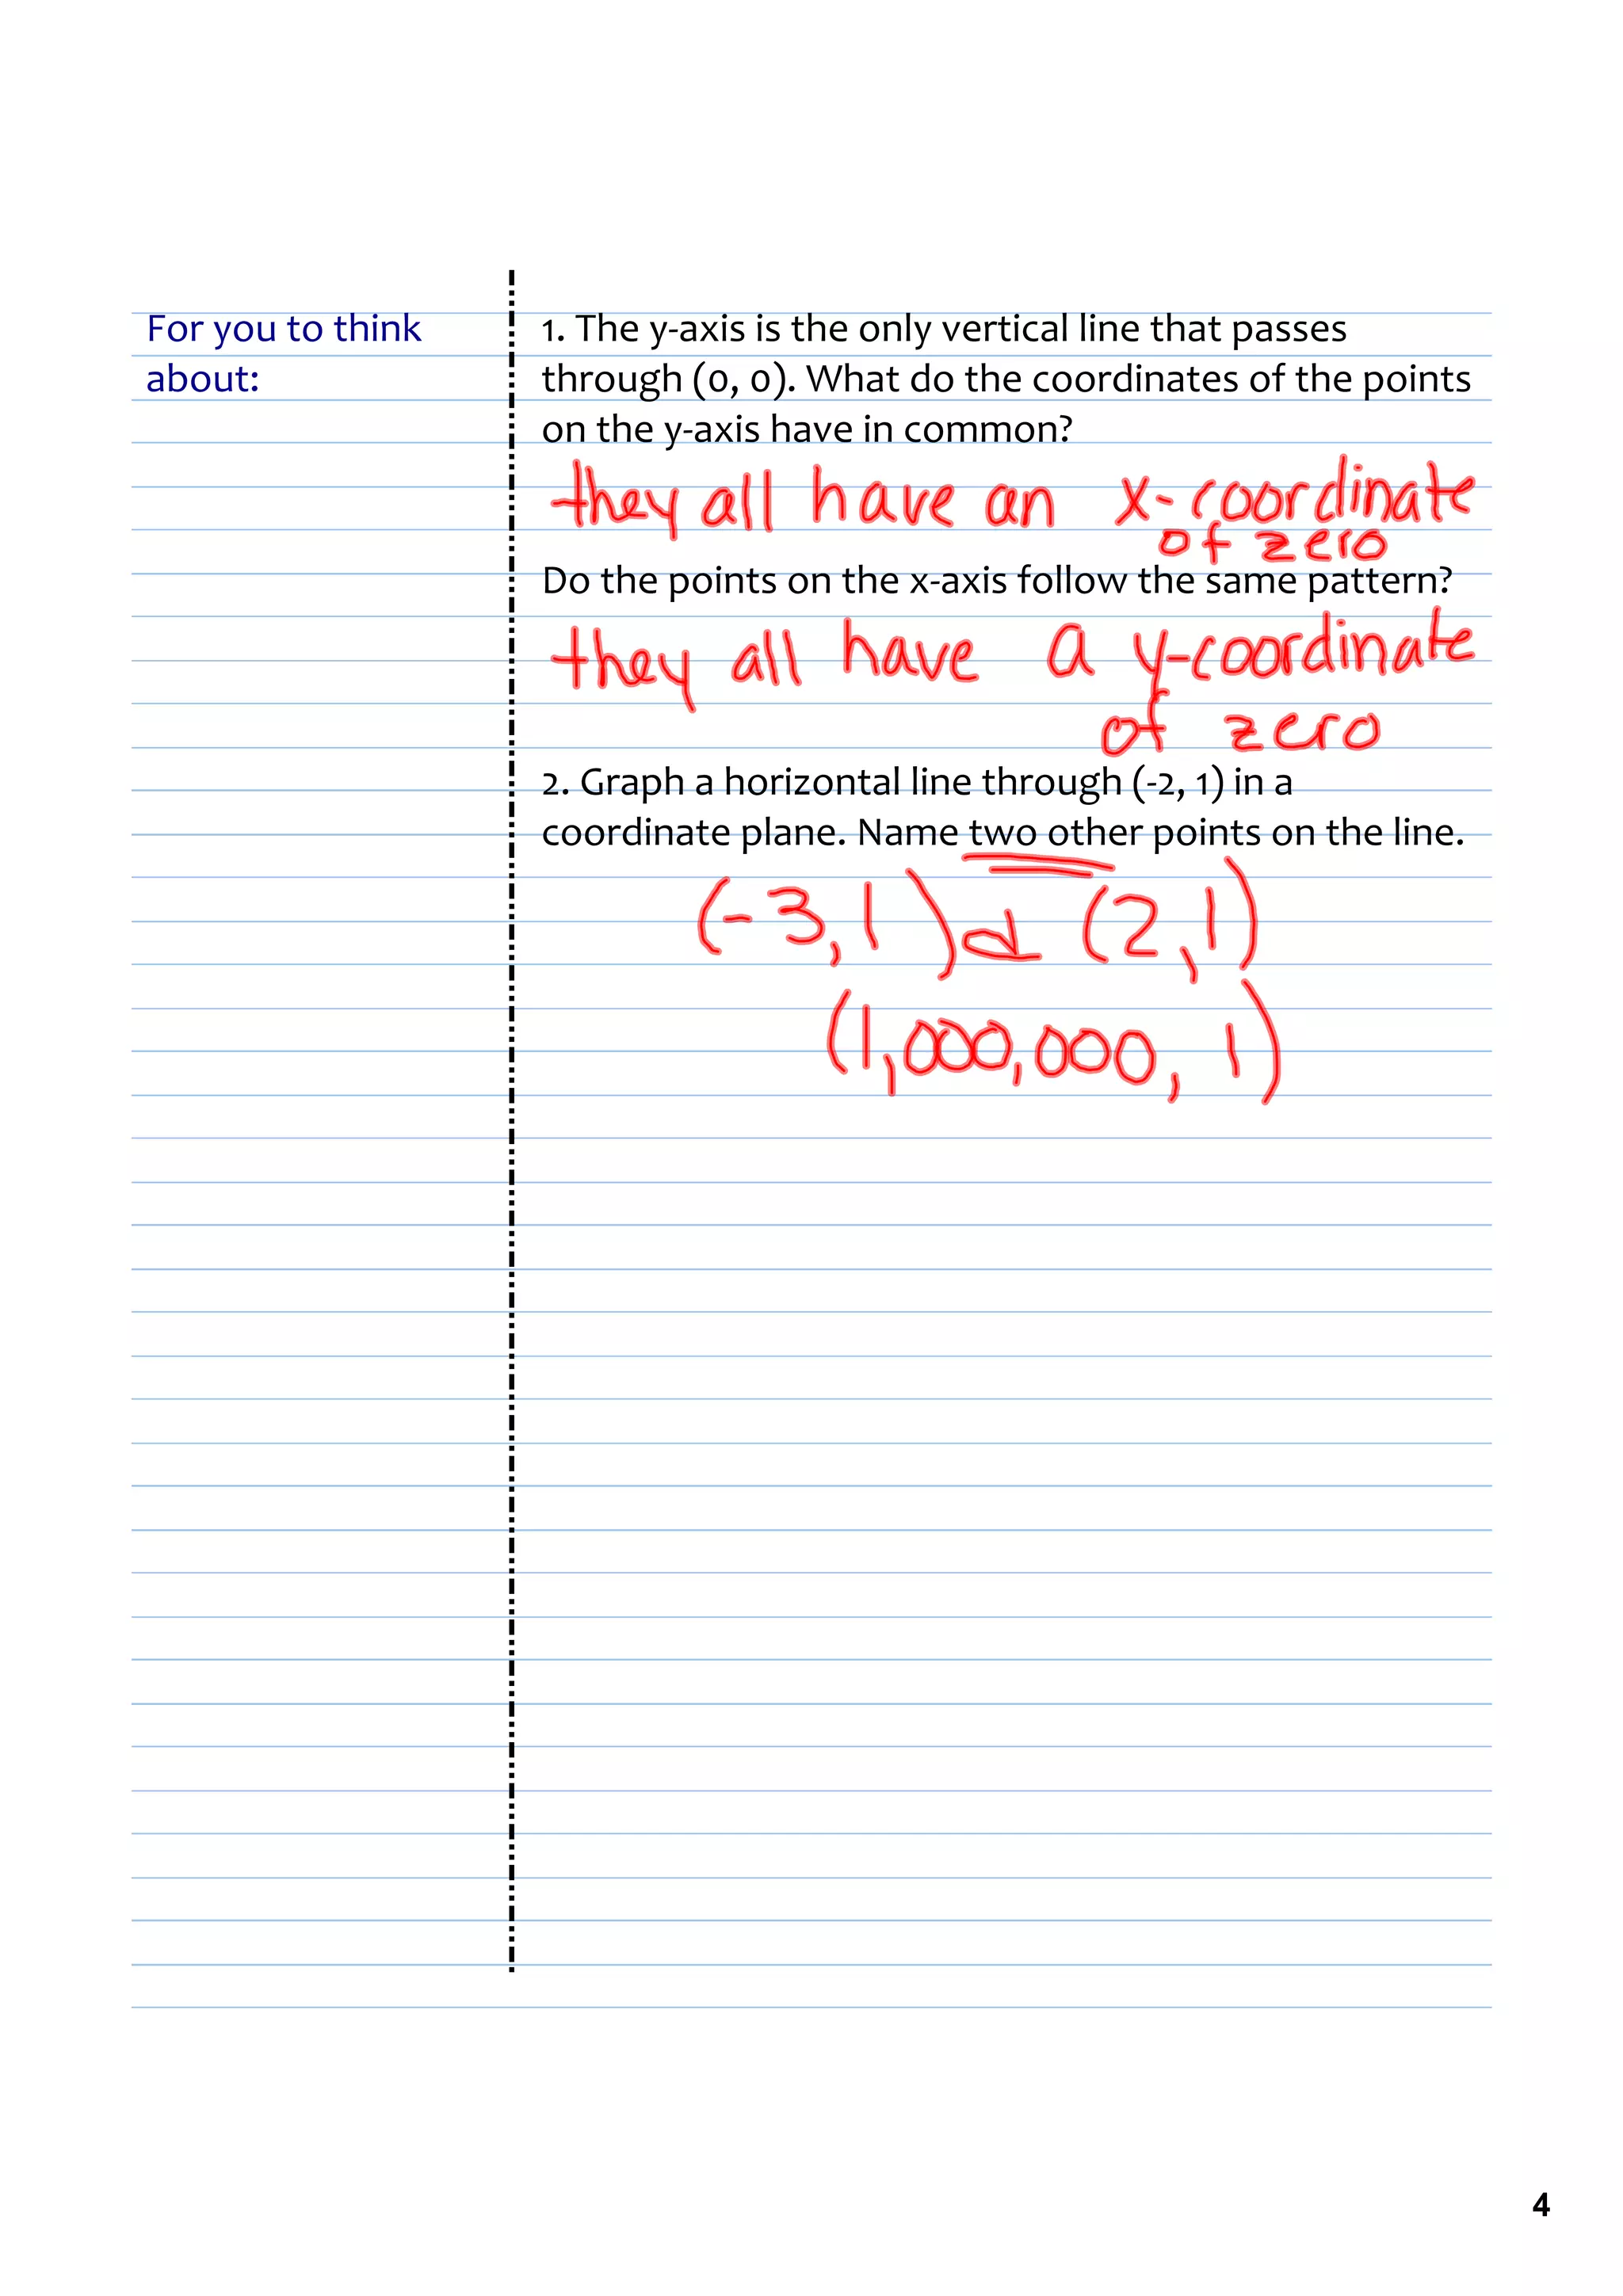 For you to think
about:
1. The y-axis is the only vertical line that passes
through (0, 0). What do the coordinates of the points
on the y-axis have in common?
they all have an x-coordinate
of zero
Do the points on the x-axis follow the same pattern?
they all have a y-coordinate
of zero
2. Graph a horizontal line through (-2, 1) in a
coordinate plane. Name two other points on the line.
(-3, 1) & (2, 1)
(1,000,000, 1)
4